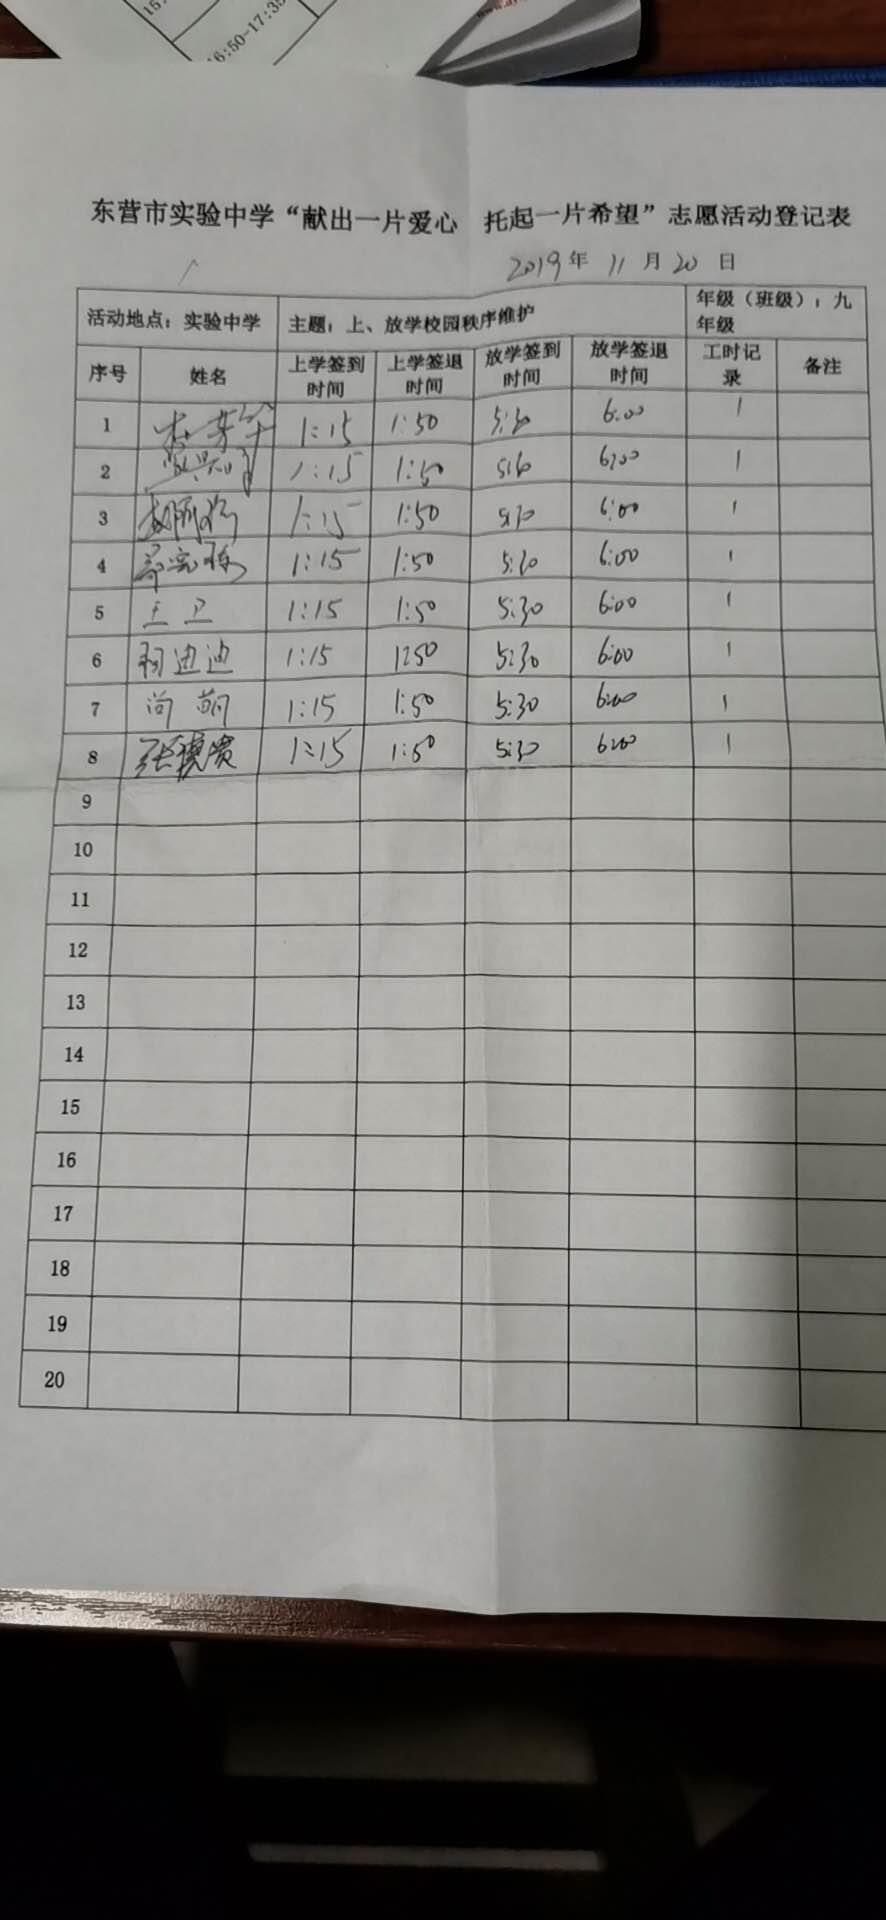 6:50-17:35
东营市实验中学“献出一片爱心 托起一片希望”志愿活动登记表
2019年 11月 20日
活动地点：实验中学 主题：上、放学校园秩序维护 年级（班级）：九年级
序号 姓名 上学签到时间 上学签退时间 放学签到时间 放学签退时间 工时记录 备注
1 1:15 1:50 5:30 6:00 1
2 1:15 1:50 5:30 6:00 1
3 1:15 1:50 5:30 6:00 1
4 1:15 1:50 5:30 6:00 1
5 王卫 1:15 1:50 5:30 6:00 1
6 1:15 1:50 5:30 6:00 1
7 尚萌 1:15 1:50 5:30 6:00 1
8 1:15 1:50 5:30 6:00 1
9
10
11
12
13
14
15
16
17
18
19
20